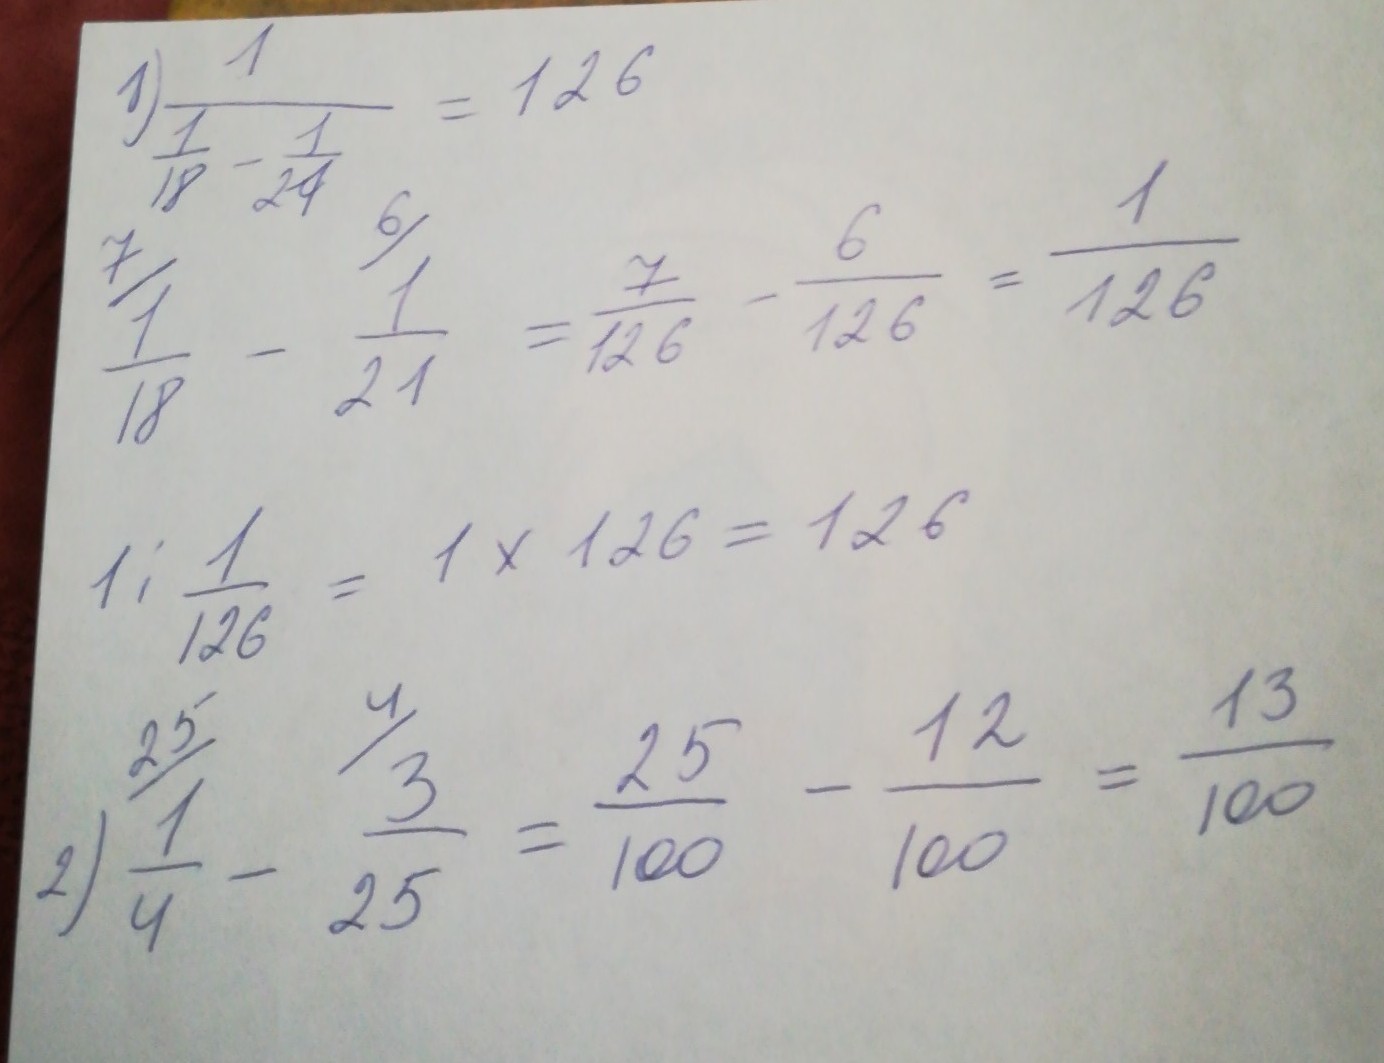 1) 1/(1/18 - 1/21) = 126
7/ 1/18 - 6/ 1/21 = 7/126 - 6/126 = 1/126
1 : 1/126 = 1 x 126 = 126
2) 25/ 1/4 - 4/ 3/25 = 25/100 - 12/100 = 13/100